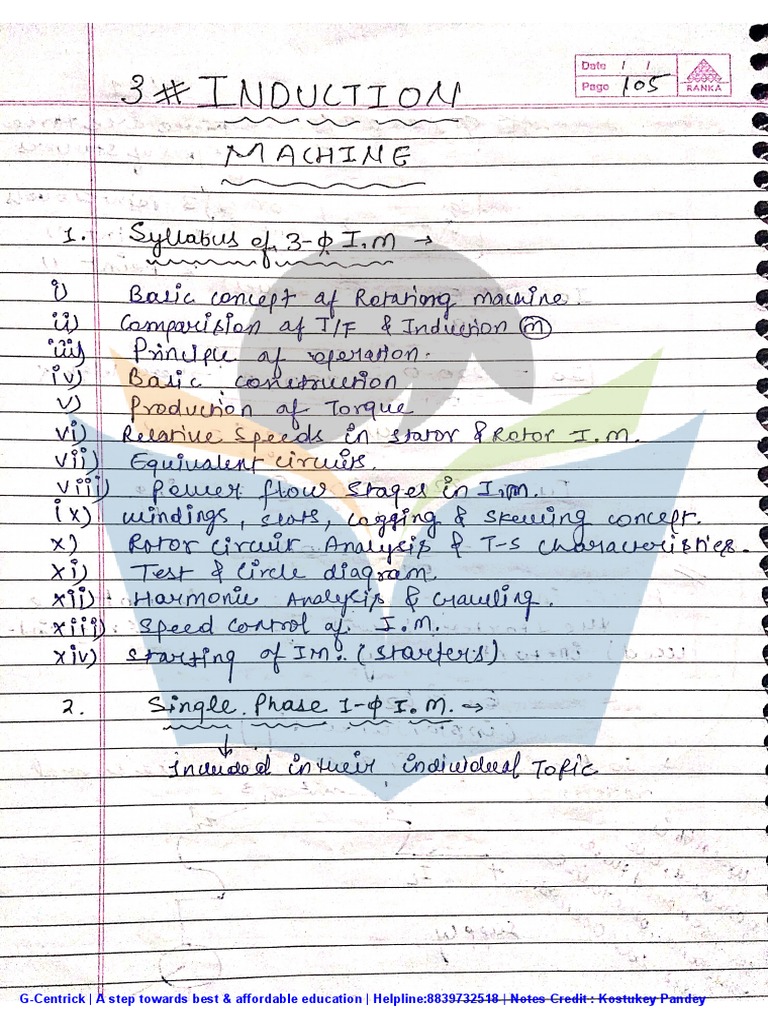 Date / /
3# INDUCTION
Page 105
RANKA
MACHINE
1. Syllabus of 3-ϕ I.M →
i) Basic concept of Rotating machine.
ii) Comparision of T/F & Induction (m)
iii) Principle of operation.
iv) Basic construction
v) Production of Torque
vi) Relative Speeds in stator & Rotor I.M.
vii) Equivalent circuits.
viii) Power flow stages in I.M.
ix) windings, slots, cogging & skewing concept.
x) Rotor circuit Analysis & T-S characteristics.
xi) Test & Circle diagram.
xii) Harmonic Analysis & crawling.
xiii) Speed control of I.M.
xiv) Starting of IM. (starters)
2. Single Phase 1-ϕ I.M. →
↓
Included in their individual Topic
G-Centrick | A step towards best & affordable education | Helpline:8839732518 | Notes Credit : Kostukey Pandey